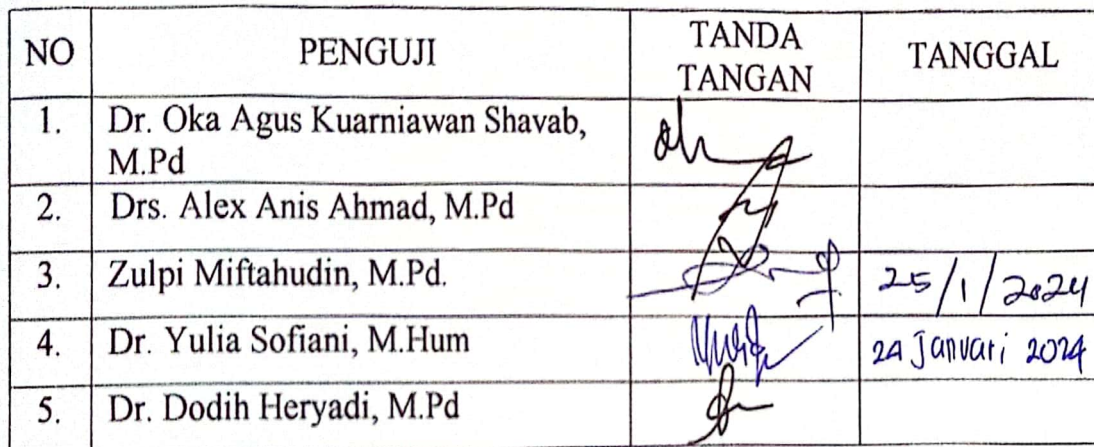 NO PENGUJI TANDA TANGAN TANGGAL
1. Dr. Oka Agus Kuarniawan Shavab,
M.Pd
2. Drs. Alex Anis Ahmad, M.Pd
3. Zulpi Miftahudin, M.Pd. 25/1/2024
4. Dr. Yulia Sofiani, M.Hum 24 Januari 2024
5. Dr. Dodih Heryadi, M.Pd